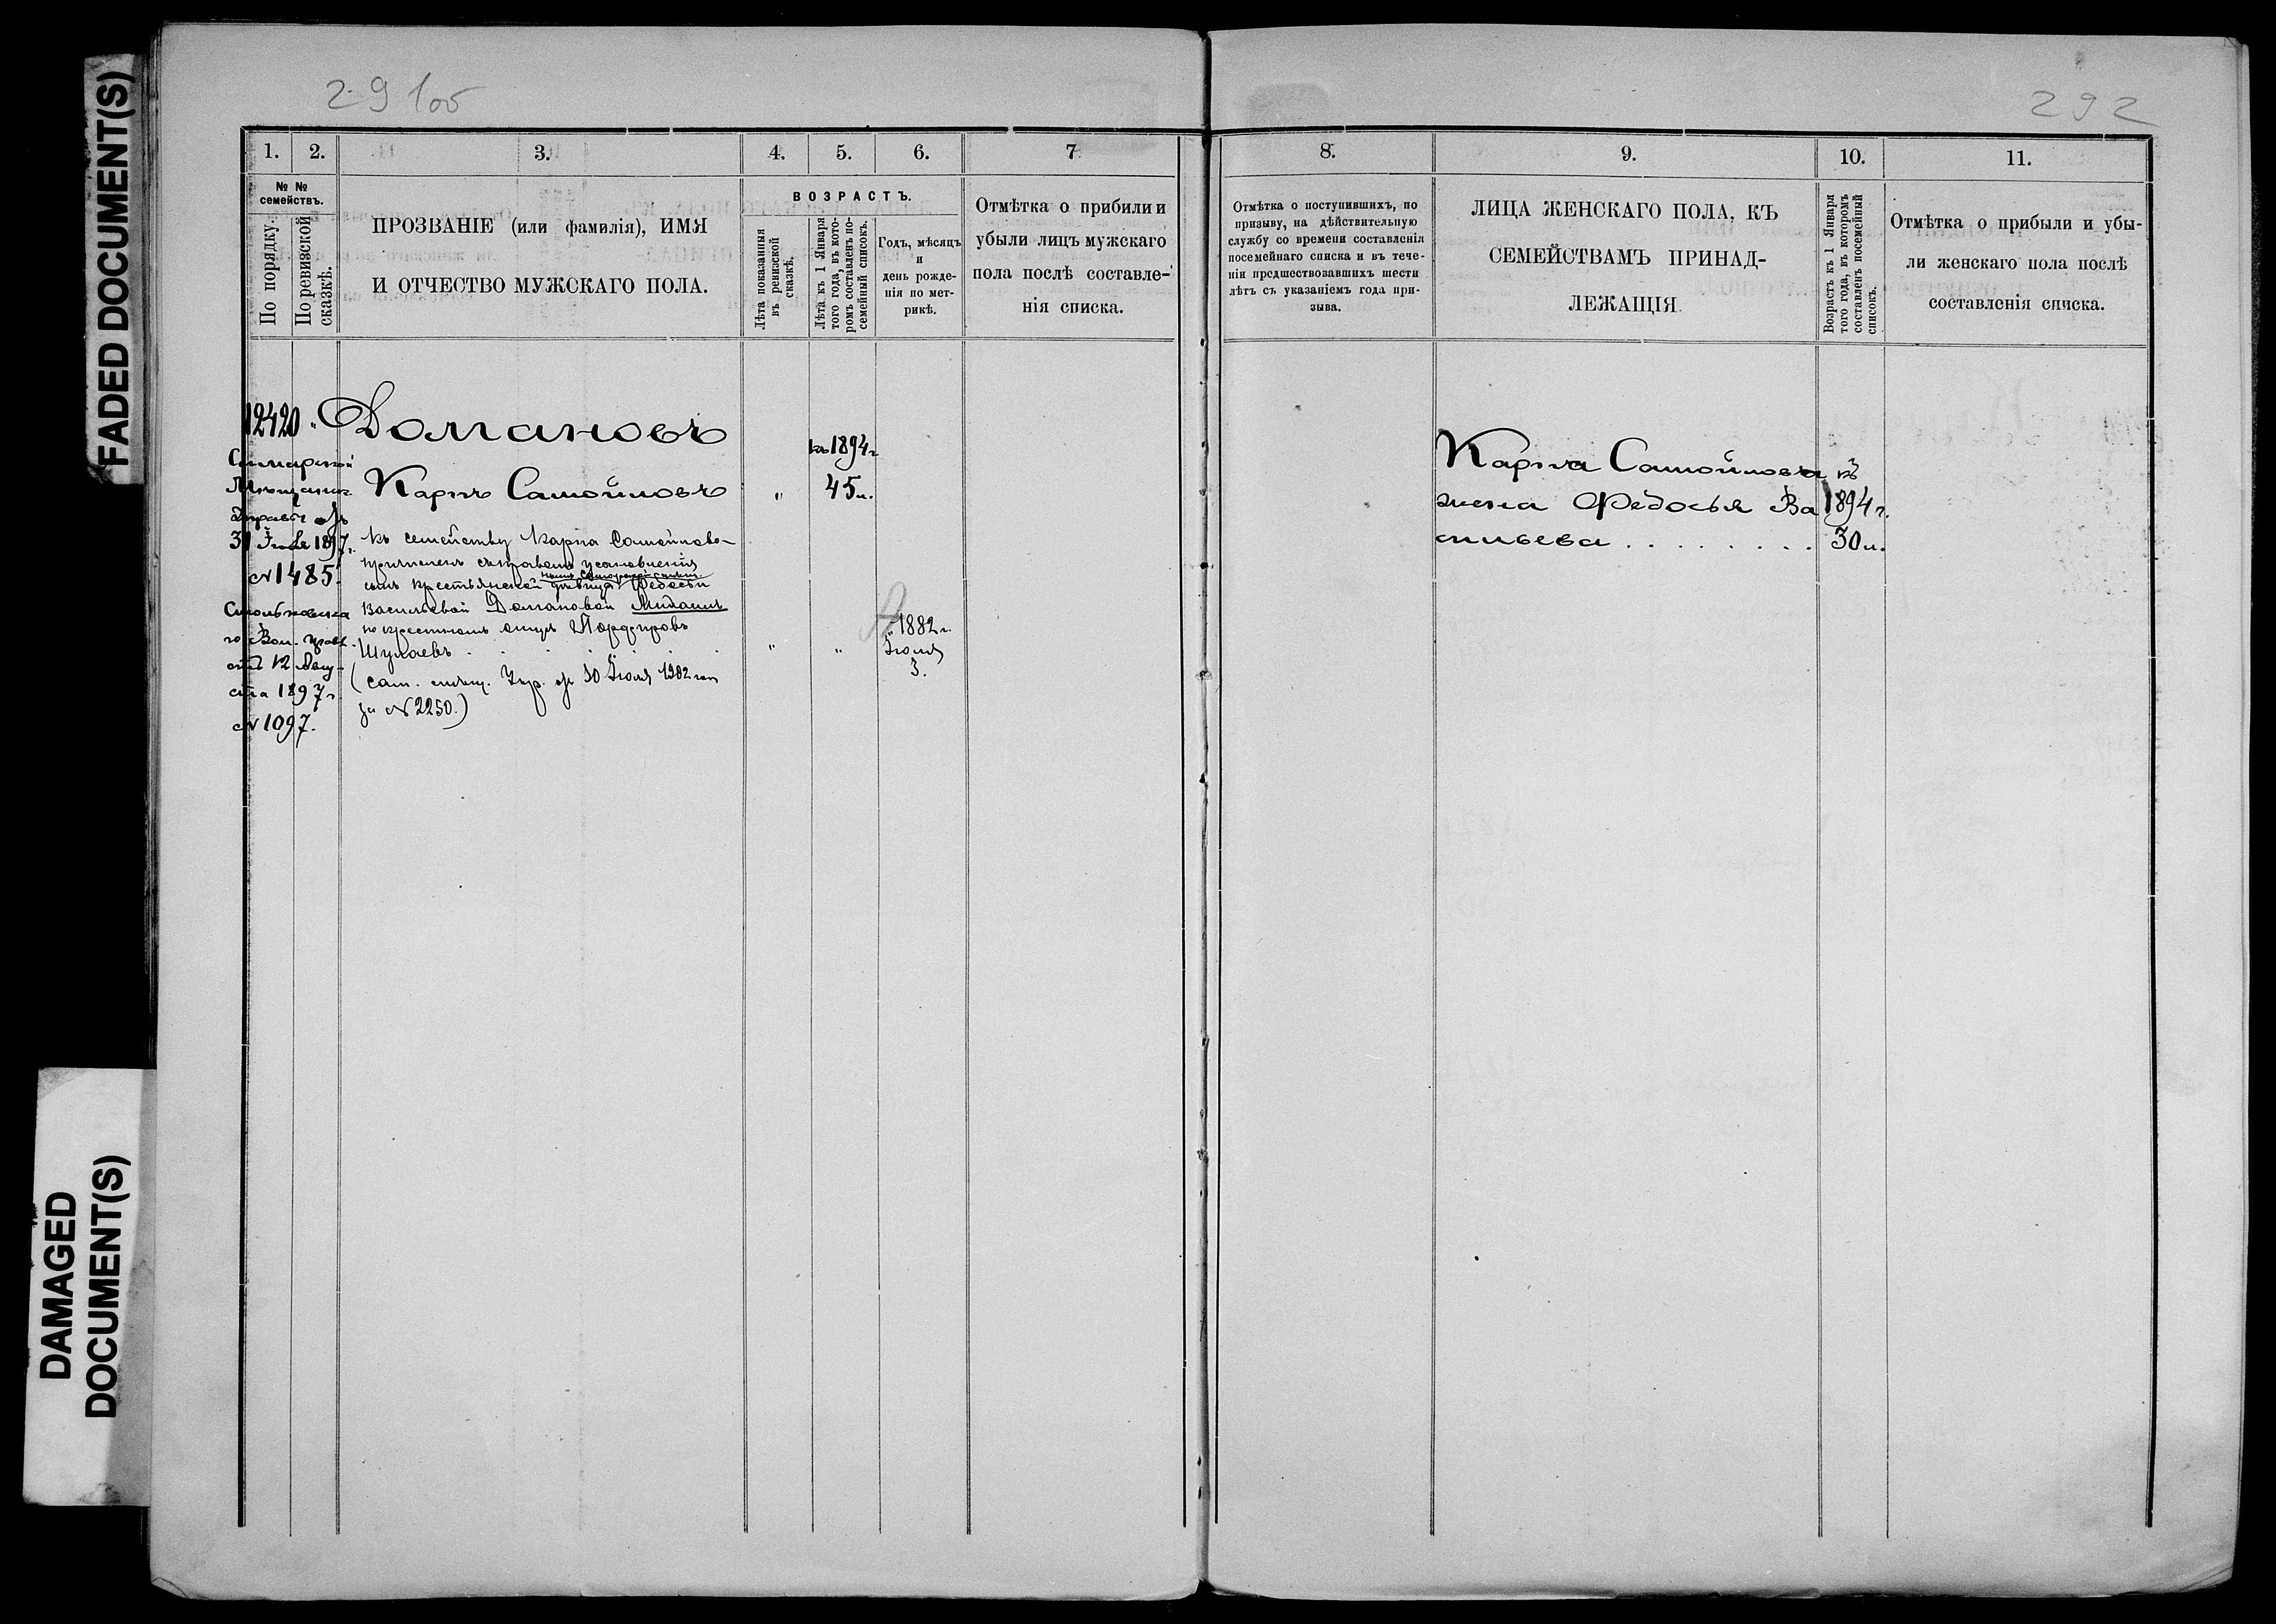 FADED DOCUMENT(S)
DAMAGED
DOCUMENT(S)
29 1об
1.
2.
3.
4.
5.
6.
7
№ №
семействъ.
По порядку.
По ревизской
сказкѣ.
ПРОЗВАНІЕ (или фамилія), ИМЯ
И ОТЧЕСТВО МУЖСКАГО ПОЛА.
ВОЗРАСТЪ.
Лѣта показанныя
въ ревизской
сказкѣ.
Лѣта къ 1 Января
того года, въ кото-
ромъ составленъ по-
семейный списокъ.
Годъ, мѣсяцъ
и
день рожде-
нія по мет-
рикѣ.
Отмѣтка о прибыли и
убыли лицъ мужскаго
пола послѣ составле-
нія списка.
12420 „
Домановъ
къ 1894 г.
Самарской
Мѣщанск.
Управы отъ
31 Іюля 1897 г.
№ 1485.
Карпъ Самойловъ
„
45 л.
къ семейству Карпа Самойлова
причисленъ съ правомъ усыновленія
сынъ крестьянской дѣвицы Федосьи
Васильевой Домановой Михаилъ
по крестному отцу Порфировъ
Шулаевъ . . . . . .
„
„
„ 1882 г.
Іюля
3.
(Сам. мѣщ. Упр. отъ 30 Іюля 1902 год
за № 2250.)
го Вол. прав.
отъ 12 Авгу-
ста 1897 г.
№ 1097.
292
8.
9.
10.
11.
Отмѣтка о поступившихъ, по
призыву, на дѣйствительную
службу со времени составленія
посемейнаго списка и въ тече-
ніи предшествовавшихъ шести
лѣтъ съ указаніемъ года при-
зыва.
ЛИЦА ЖЕНСКАГО ПОЛА, КЪ
СЕМЕЙСТВАМЪ ПРИНАД-
ЛЕЖАЩІЯ.
Возрастъ къ 1 Января
того года, въ которомъ
составленъ посемейный
списокъ.
Отмѣтка о прибыли и убы-
ли женскаго пола послѣ
составленія списка.
Карпа Самойлова къ
жена Федосья Ва 1894 г.
сильева . . . . . . . . 30 л.